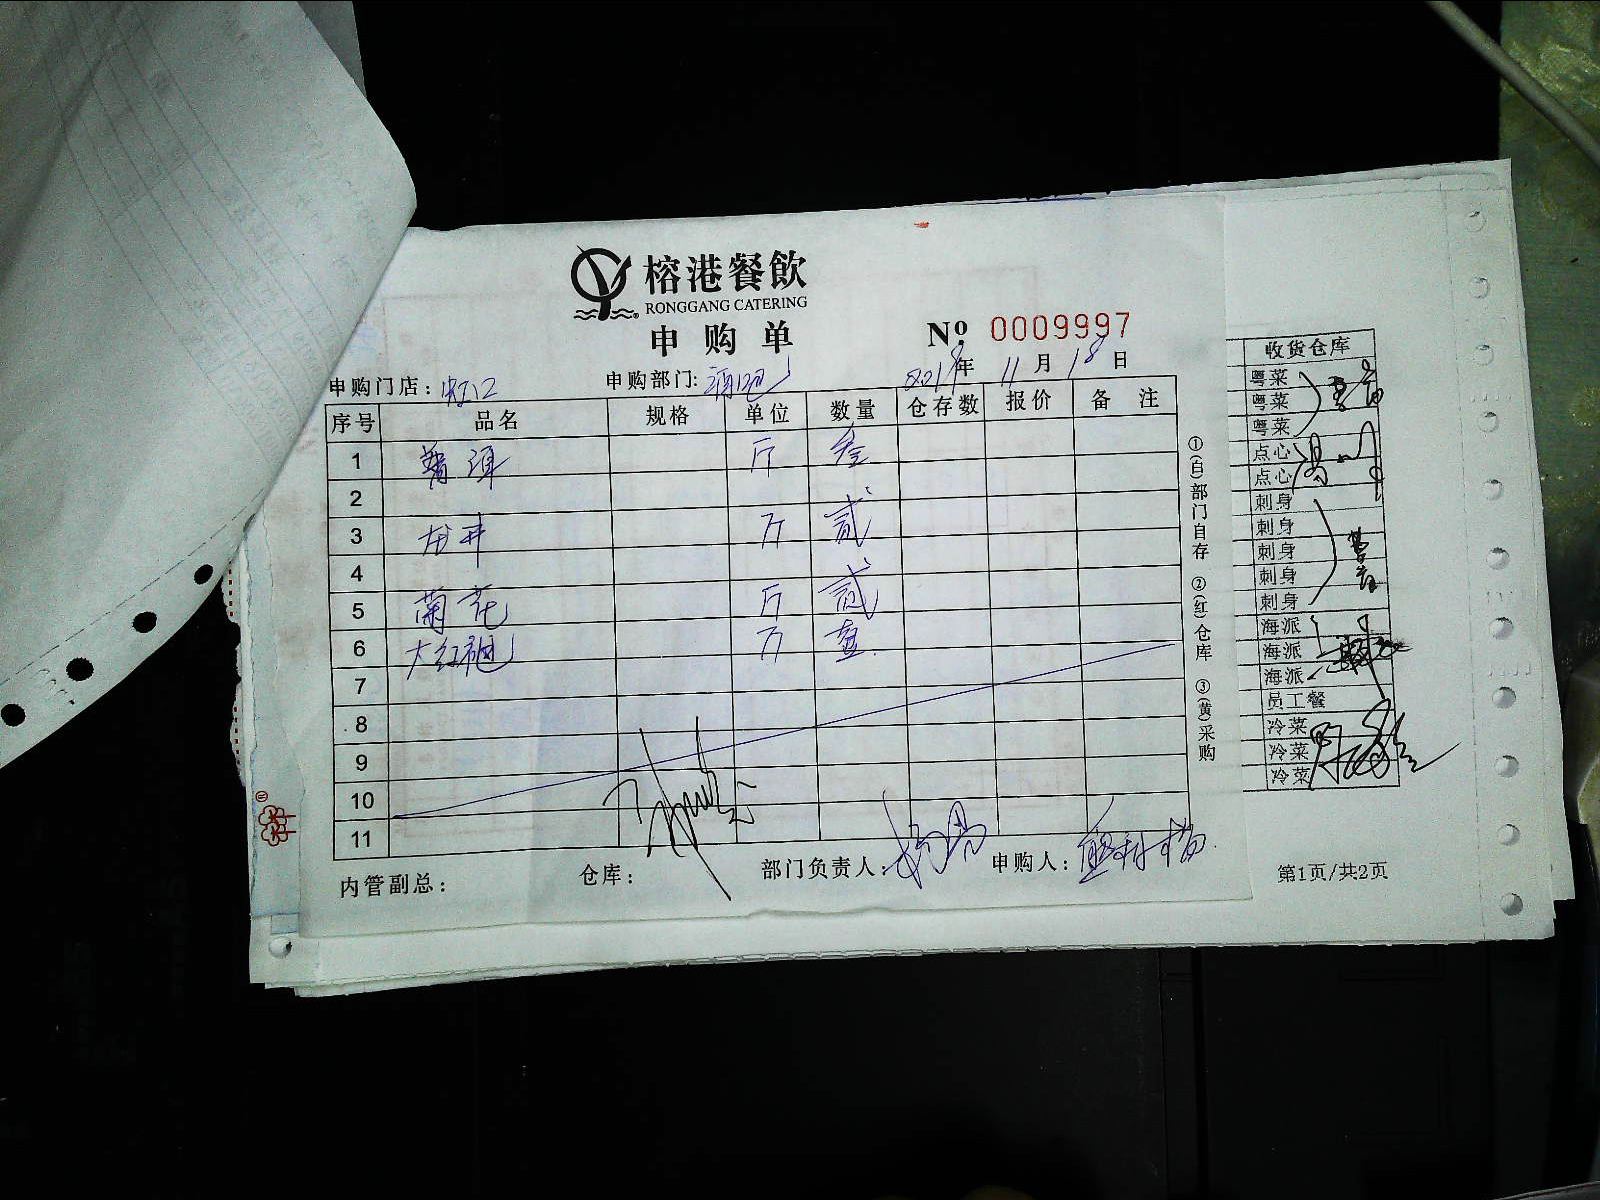 榕港餐飲
RONGGANG CATERING
申购单
Nº 0009997
2019年 11月 18日
申购门店: 虹口 申购部门: 酒吧
序号 品名 规格 单位 数量 仓存数 报价 备 注
1 普洱 斤 叁
2
3 龙井 斤 贰
4
5 菊花 斤 贰
6 大红袍 斤 壹
7
8
9
10
11
内管副总: 仓库: 部门负责人: 申购人:
①(白)部门自存 ②(红)仓库 ③(黄)采购
收货仓库
粤菜
粤菜
粤菜
点心
点心
刺身
刺身
刺身
刺身
刺身
海派
海派
海派
员工餐
冷菜
冷菜
冷菜
第1页/共2页